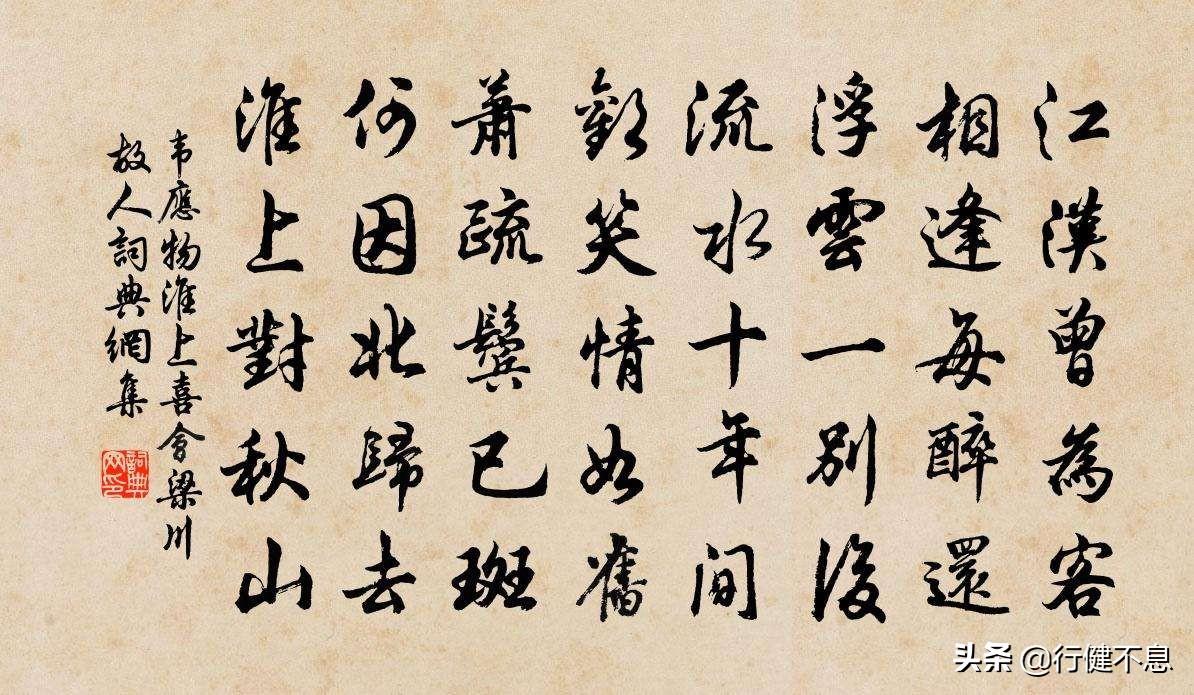 江漢曾為客
相逢每醉還
浮雲一別後
流水十年間
歡笑情如舊
蕭疏鬢已斑
何因北歸去
淮上對秋山
韦應物淮上喜會梁川
故人詞典網集
詞典
网印
头条 @行健不息